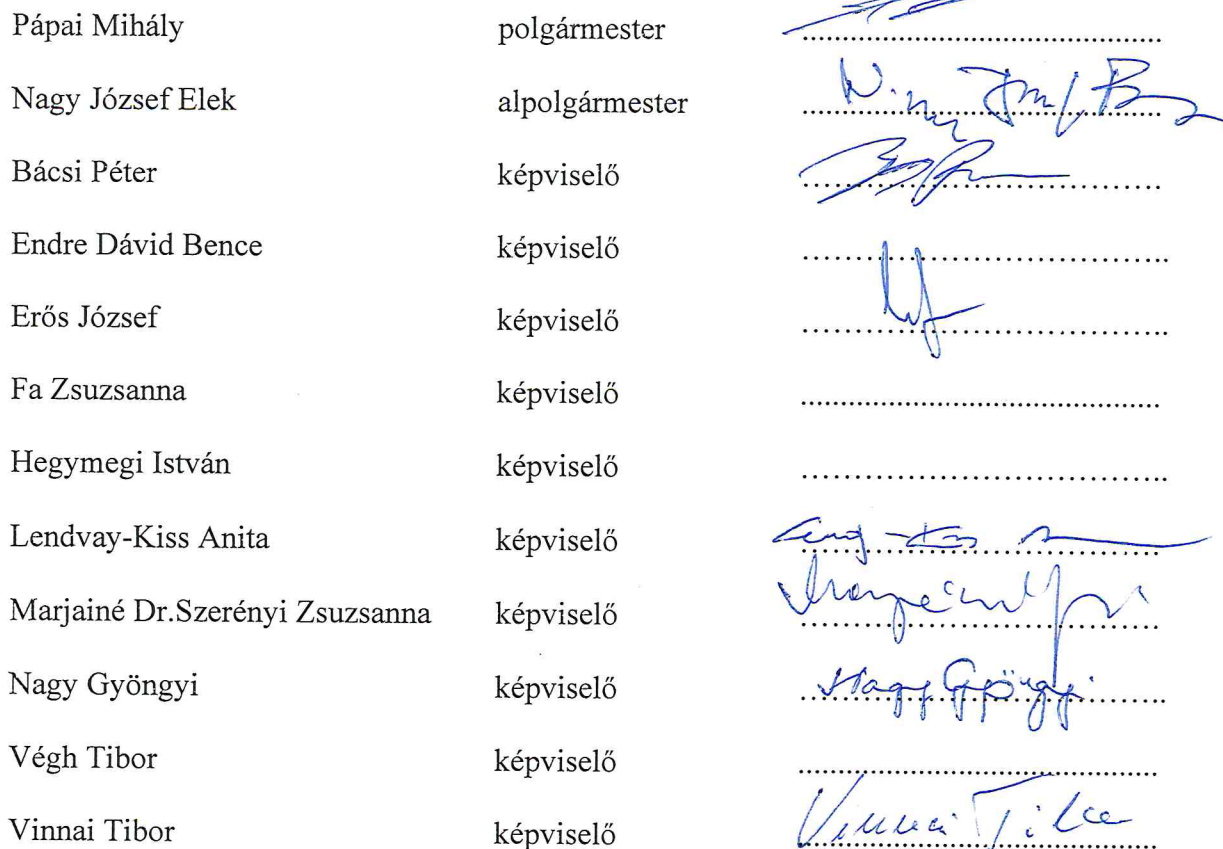 Pápai Mihály polgármester
Nagy József Elek alpolgármester
Bácsi Péter képviselő
Endre Dávid Bence képviselő
Erős József képviselő
Fa Zsuzsanna képviselő
Hegymegi István képviselő
Lendvay-Kiss Anita képviselő
Marjainé Dr.Szerényi Zsuzsanna képviselő
Nagy Gyöngyi képviselő Nagy Gyöngyi
Végh Tibor képviselő
Vinnai Tibor képviselő Vinnai